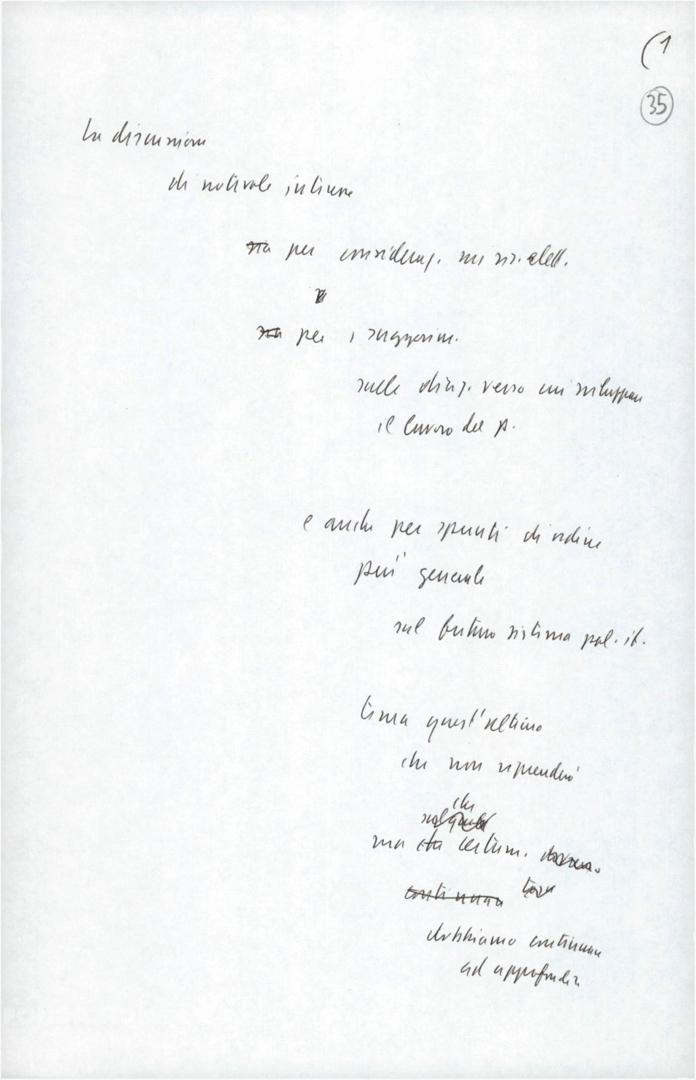 (1
35
La discussione
di notevole interesse
sia per consideraz. sui ris. elett.
sia per i suggerim.
sulle direz. verso cui sviluppare
il lavoro del p.
e anche per spunti di ordine
più generale
sul futuro sistema pol. it.
tema quest'ultimo
che non riprenderò
che
ma che certam.
continuare
dobbiamo continuare
ad approfondire